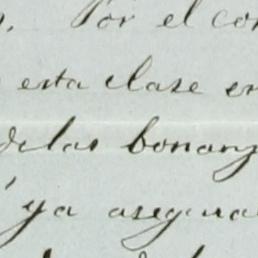 Por el con
esta clase en
delas bonanz
ya asegura